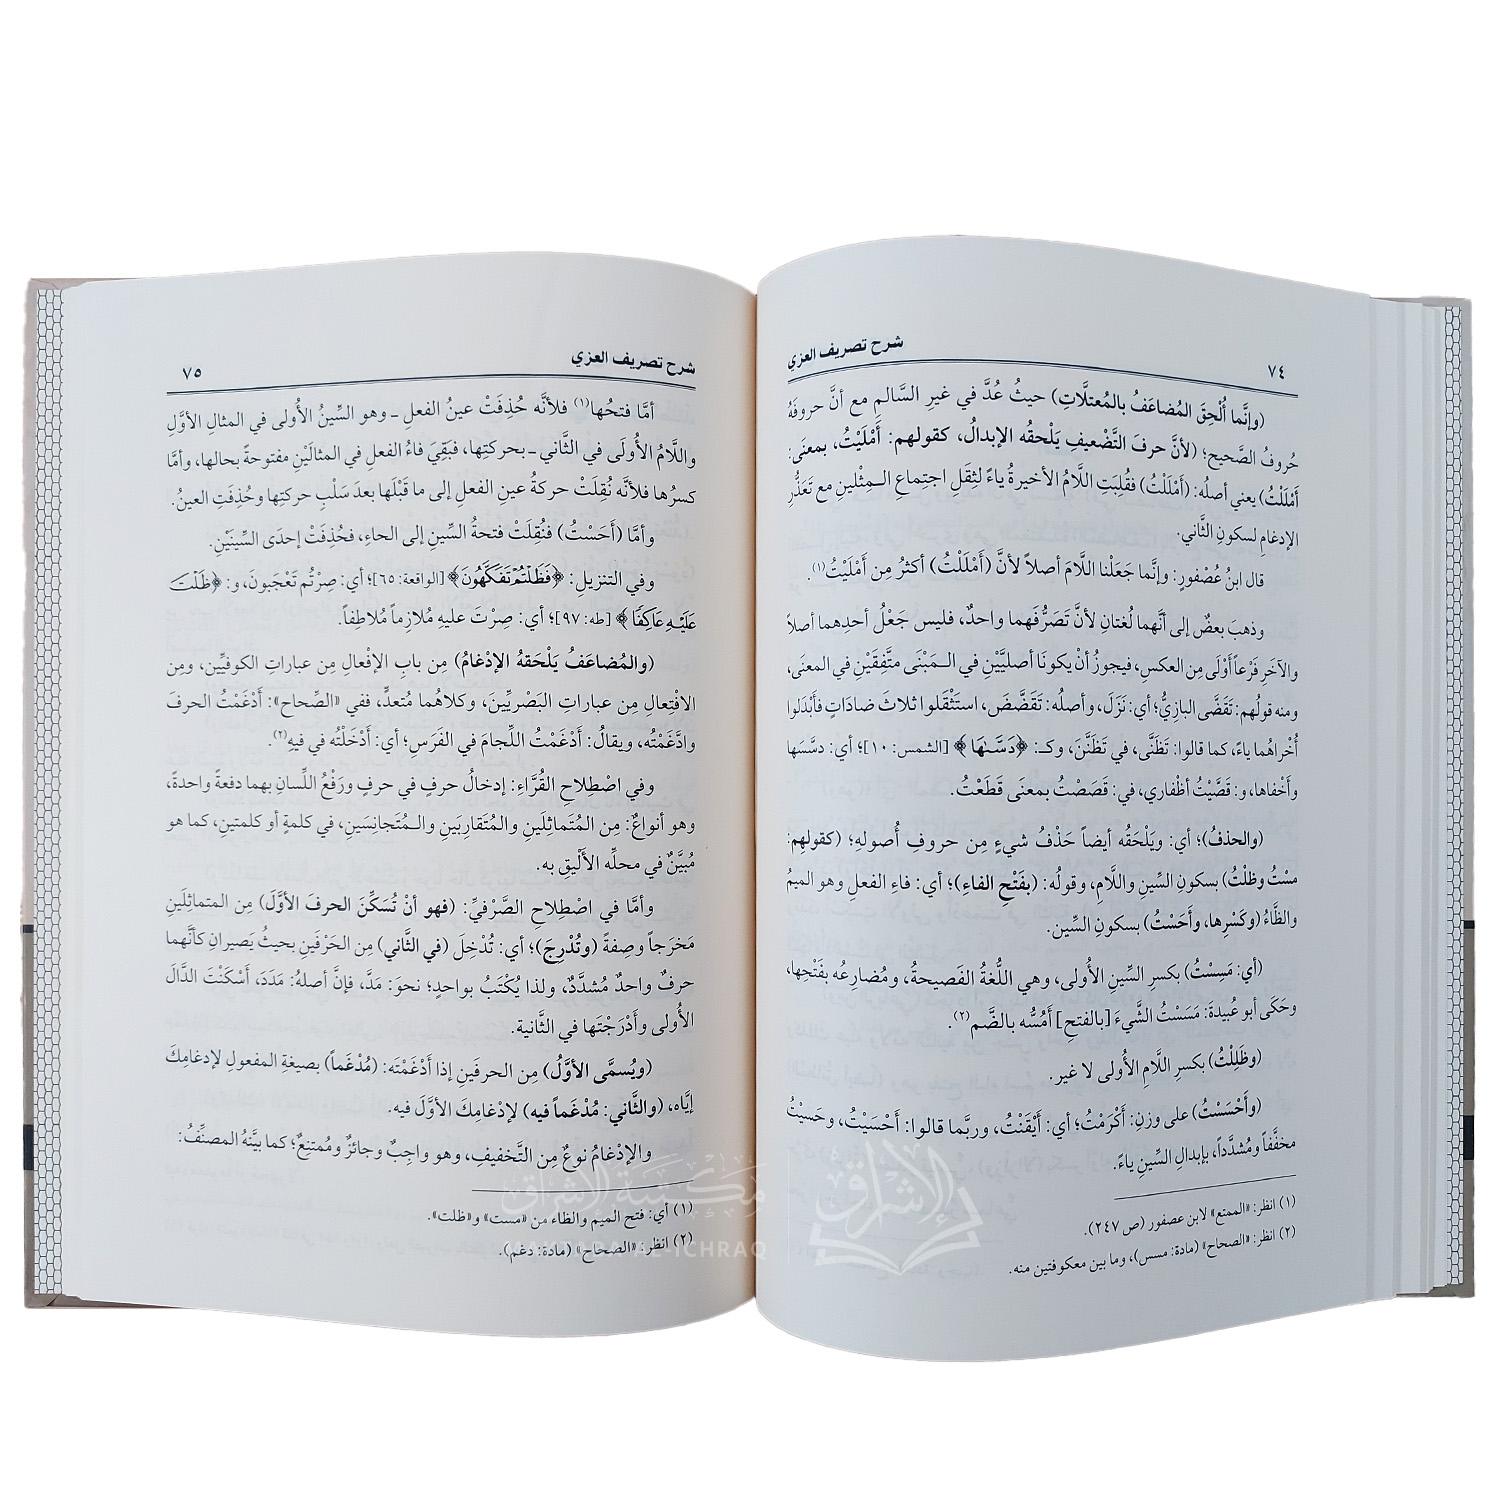 ٧٤
شرح تصريف العزي
(وإنَّما أُلْحِقَ المُضاعَفُ بالمُعتلَّاتِ) حيثُ عُدَّ في غيرِ السَّالمِ مع أنَّ حروفَهُ
حُروفُ الصَّحيح؛ (لأنَّ حرفَ التَّضعيفِ يَلْحقُه الإبدالُ، كقولهم: أَمْلَيْتُ، بمعنى:
أَمْلَلْتُ) يعني أصلُه: (أَمْلَلْتُ) فقُلِبَتِ اللَّامُ الأخيرةُ ياءً لثِقَلِ اجتماعِ الـمِثْلينِ مع تَعَذُّرِ
الإدغامِ لسكونِ الثَّاني.
قال ابنُ عُصْفورٍ: وإنَّما جَعَلْنا اللَّامَ أصلاً لأنَّ (أَمْلَلْتُ) أكثرُ مِن أَمْلَيْتُ(١).
وذهبَ بعضٌ إلى أنَّهما لُغتانِ لأنَّ تَصَرُّفَهما واحدٌ، فليس جَعْلُ أحدِهما أصلاً
والآخرِ فَرْعاً أَوْلَى مِن العكسِ، فيجوزُ أنْ يكونَا أصليَّيْنِ في الـمَبْنَى متَّفِقَيْنِ في المعنَى،
ومنه قولُهم: تَقَضَّى البازِيُّ؛ أي: نَزَلَ، وأصلُه: تَقَضَّضَ، استَثْقَلوا ثلاثَ ضاداتٍ فأَبْدَلوا
أُخْراهُما ياءً، كما قالوا: تَظَنَّى، في تَظَنَّنَ، وكـ: ﴿دَسَّىٰهَا﴾ [الشمس: ١٠]؛ أي: دسَّسَها
وأَخْفاها، و: قَصَّيْتُ أظْفاري، في: قَصَصْتُ بمعنى قَطَعْتُ.
(والحذفُ)؛ أي: ويَلْحَقُه أيضاً حَذْفُ شيءٍ مِن حروفِ أُصولِه؛ (كقولهِم:
مسْتُ وظلْتُ) بسكونِ السِّينِ واللَّامِ، وقولُه: (بفَتْحِ الفاءِ)؛ أي: فاءِ الفعلِ وهو الميمُ
والظَّاءُ (وكَسْرِها، وأَحَسْتُ) بسكونِ السِّين.
(أي: مَسِسْتُ) بكسرِ السِّينِ الأُولى، وهي اللُّغةُ الفَصيحةُ، ومُضارِعُه بفَتْحِها،
وحَكَى أبو عُبيدةَ: مَسَسْتُ الشَّيءَ [بالفتحِ] أَمُسُّه بالضَّم(٢).
(وظَلِلْتُ) بكسرِ اللَّامِ الأُولى لا غير.
(وأَحْسَسْتُ) على وزنِ: أَكْرَمْتُ؛ أي: أَيْقَنْتُ، وربَّما قالوا: أَحْسَيْتُ، وحَسَيْتُ
مخفَّفاً ومُشدَّداً، بإبدالِ السِّينِ ياءً.
(١) انظر: «الممتع» لابن عصفور (ص ٢٤٧).
(٢) انظر: «الصحاح» (مادة: مسس)، وما بين معكوفتين منه.
شرح تصريف العزي
٧٥
أمَّا فتحُها(١) فلأنَّه حُذِفَتْ عينُ الفعلِ ـ وهو السِّينُ الأُولى في المثالِ الأوَّلِ
واللَّامُ الأُولَى في الثَّاني ـ بحركتِها، فبَقِيَ فاءُ الفعلِ في المثالَيْنِ مفتوحةً بحالِها، وأمَّا
كسرُها فلأنَّه نُقِلَتْ حركةُ عينِ الفعلِ إلى ما قبْلَها بعدَ سَلْبِ حركتِها وحُذِفَتِ العينُ.
وأمَّا (أَحَسْتُ) فنُقِلَتْ فتحةُ السِّينِ إلى الحاءِ، فحُذِفَتْ إحدَى السِّينَيْنِ.
وفي التنزيلِ: ﴿فَظَلْتُمْ تَفَكَّهُونَ﴾ [الواقعة: ٦٥]؛ أي: صِرْتُم تَعْجَبونَ، و: ﴿ظَلْتَ
عَلَيْهِ عَاكِفًا﴾ [طه: ٩٧]؛ أي: صِرْتَ عليهِ مُلازِماً مُلاطِفاً.
(والمُضاعَفُ يَلْحَقهُ الإدْغامُ) مِن بابِ الإفْعالِ مِن عباراتِ الكوفيِّين، ومِن
الافْتِعالِ مِن عباراتِ البَصْريِّينَ، وكلاهُما مُتعدٍّ، ففي «الصِّحاح»: أَدْغَمْتُ الحرفَ
وادَّغَمْتُه، ويقالُ: أَدْغَمْتُ اللِّجامَ في الفَرَسِ؛ أي: أَدْخَلْتُه في فيهِ(٢).
وفي اصْطِلاحِ القُرَّاءِ: إدخالُ حرفٍ في حرفٍ ورَفْعُ اللِّسانِ بهما دفعةً واحدةً،
وهو أنواعٌ: مِن المُتَماثِلَينِ والمُتَقارِبَينِ والـمُتَجانِسَينِ، في كلمةٍ أو كلمتينِ، كما هو
مُبيَّنٌ في محلِّه الأَلْيقِ به.
وأمَّا في اصْطِلاحِ الصَّرْفيِّ: (فهو أنْ تُسَكِّنَ الحرفَ الأوَّلَ) مِن المتماثِلَينِ
مَخرَجاً وصِفةً (وتُدْرِجَ)؛ أي: تُدْخِلَ (في الثَّاني) مِن الحَرْفَينِ بحيثُ يَصيرانِ كأنَّهما
حرفٌ واحدٌ مُشدَّدٌ، ولذا يُكْتَبُ بواحدٍ؛ نحوَ: مَدَّ، فإنَّ أصلهُ: مَدَدَ، أَسْكَنْتَ الدَّالَ
الأُولى وأَدْرَجْتَها في الثَّانية.
(ويُسمَّى الأوَّلُ) مِن الحرفَينِ إذا أَدْغَمْتَه: (مُدْغَماً) بصيغةِ المفعولِ لإدغامِكَ
إيَّاه، (والثَّاني: مُدْغَماً فيه) لإدْغامِكَ الأوَّلَ فيه.
والإدْغامُ نوعٌ مِن التَّخفيفِ، وهو واجبٌ وجائزٌ ومُمتنِعٌ؛ كما بيَّنهُ المصنِّفُ:
(١) أي: فتح الميم والظاء من «مست» و«ظلت».
(٢) انظر: «الصحاح» (مادة: دغم).
مكتبة الإشراق
MAKTABA AL-ICHRAQ
الإشراق